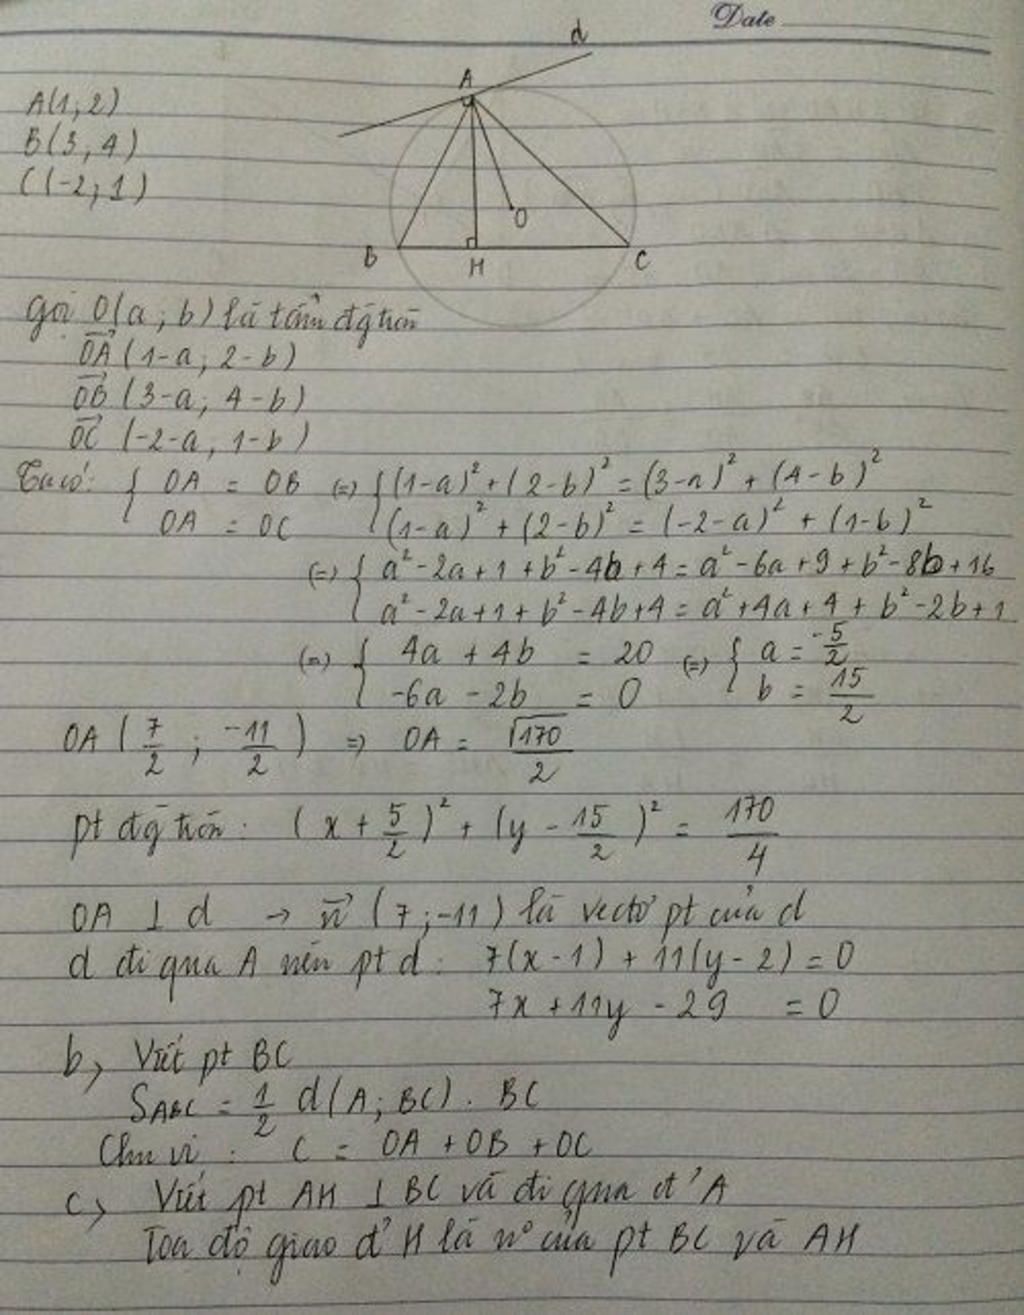 Date
d
A
A(1; 2)
B(3, 4)
C(-2; 1)
O
B
H
C
Gọi O(a; b) là tâm đg tròn
OA (1-a; 2-b)
OB (3-a; 4-b)
OC (-2-a, 1-b)
Ta có: { OA = OB (=) { (1-a)² + (2-b)² = (3-a)² + (4-b)²
OA = OC (1-a)² + (2-b)² = (-2-a)² + (1-b)²
(=) { a² - 2a + 1 + b² - 4b + 4 = a² - 6a + 9 + b² - 8b + 16
a² - 2a + 1 + b² - 4b + 4 = a² + 4a + 4 + b² - 2b + 1
(=) { 4a + 4b = 20 (=) { a = -5/2
-6a - 2b = 0 b = 15/2
OA (7/2; -11/2) => OA = √170/2
pt đg tròn: (x + 5/2)² + (y - 15/2)² = 170/4
OA ⊥ d → n⃗ (7; -11) là vectơ pt của d
d đi qua A nên pt d: 7(x-1) + 11(y-2) = 0
7x + 11y - 29 = 0
b, Viết pt BC
SABC = 1/2 d(A; BC). BC
Chu vi: C = OA + OB + OC
c, Viết pt AH ⊥ BC và đi qua đ' A
Toạ độ giao đ' H là n° của pt BC và AH